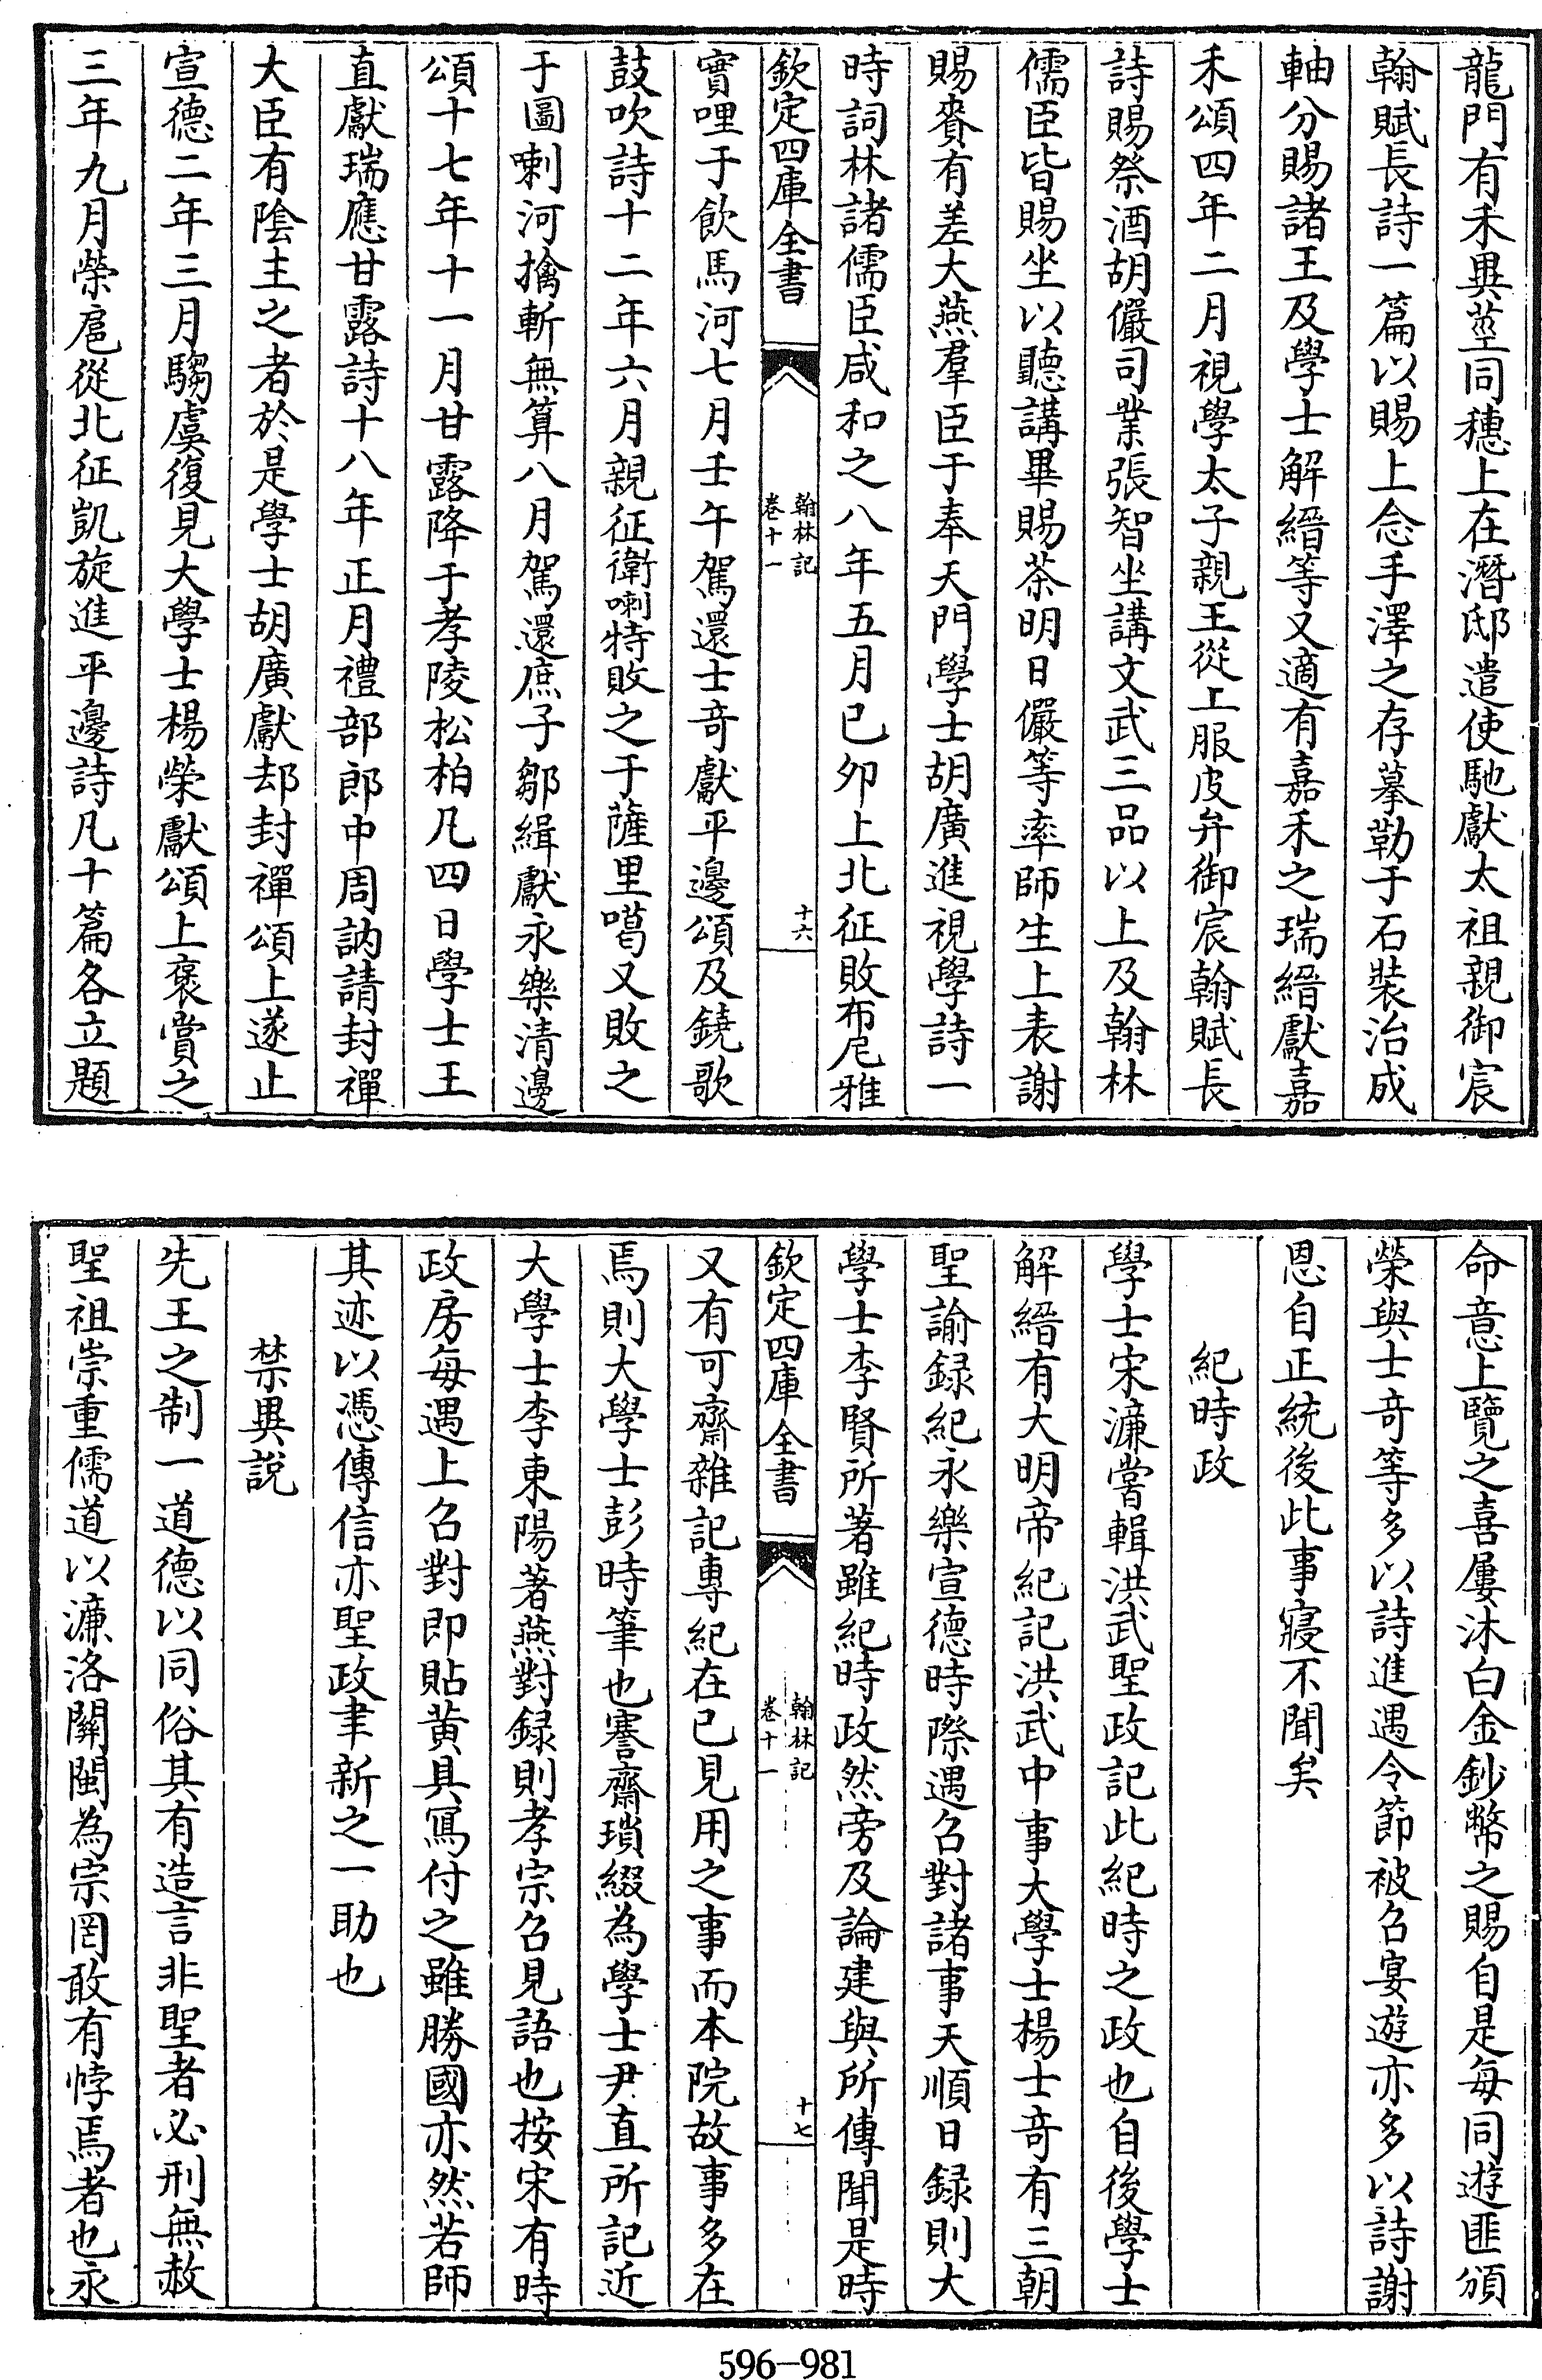 龍門有禾異莖同穗上在潛邸遣使馳獻太祖親御宸
翰賦長詩一篇以賜上念手澤之存摹勒于石裝治成
軸分賜諸王及學士解縉等又適有嘉禾之瑞縉獻嘉
禾頌四年二月視學太子親王從上服皮弁御宸翰賦長
詩賜祭酒胡儼司業張智坐講文武三品以上及翰林
儒臣皆賜坐以聽講畢賜茶明日儼等率師生上表謝
賜賚有差大燕羣臣于奉天門學士胡廣進視學詩一
時詞林諸儒臣咸和之八年五月己卯上北征敗布尼雅
欽定四庫全書
翰林記
卷十一
十六
實哩于飲馬河七月壬午駕還士奇獻平邊頌及鐃歌
鼓吹詩十二年六月親征衛喇特敗之于薩里噶又敗之
于圖喇河擒斬無算八月駕還庶子鄒緝獻永樂清邊
頌十七年十一月甘露降于孝陵松柏凡四日學士王
直獻瑞應甘露詩十八年正月禮部郎中周訥請封禪
大臣有隂主之者於是學士胡廣獻却封禪頌上遂止
宣德二年三月騶虞復見大學士楊榮獻頌上褒賞之
三年九月榮扈從北征凱旋進平邊詩凡十篇各立題
命意上覽之喜屢沐白金鈔幣之賜自是每同遊匪頒
榮與士奇等多以詩進遇令節被召宴遊亦多以詩謝
恩自正統後此事寢不聞矣
紀時政
學士宋濂嘗輯洪武聖政記此紀時之政也自後學士
解縉有大明帝紀記洪武中事大學士楊士奇有三朝
聖諭録紀永樂宣德時際遇召對諸事天順日録則大
學士李賢所著雖紀時政然旁及論建與所傳聞是時
欽定四庫全書
翰林記
卷十一
十七
又有可齋雜記專紀在己見用之事而本院故事多在
焉則大學士彭時筆也謇齋瑣綴為學士尹直所記近
大學士李東陽著燕對録則孝宗召見語也按宋有時
政房每遇上召對即貼黄具寫付之雖勝國亦然若師
其迹以憑傳信亦聖政聿新之一助也
禁異說
先王之制一道德以同俗其有造言非聖者必刑無赦
聖祖崇重儒道以濂洛關閩為宗罔敢有悖焉者也永
596-981